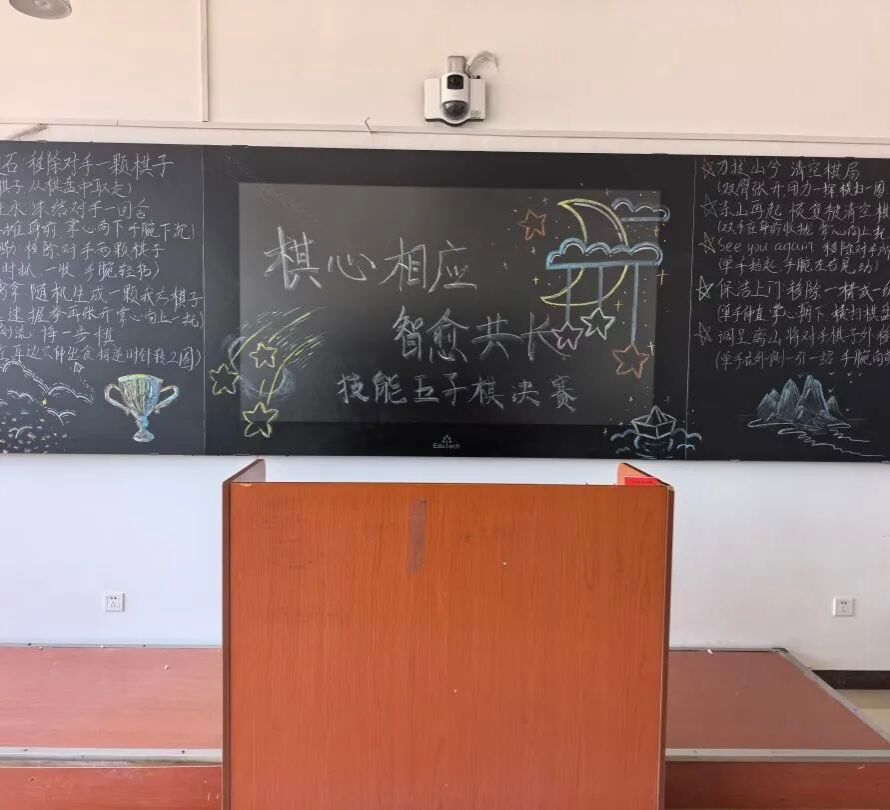 石 移除对手一颗棋子
棋子从棋盘中取走)
止水 冻结对手一回合
推身前 掌心向下手腕下沉)
移除对手两颗棋子
时扒 一收 手腕轻
拿 随机生成一颗我方棋子
速握拳再张开掌心向上一托)
倒流 悔一步棋
在耳边 伸出食指逆时针转2圈)
棋心相应
智愈共长
技能五子棋决赛
EduTech
力拔山兮 清空棋局
(双臂张开用力一挥横扫一圈
东山再起 恢复被清空棋
(双手在身前收拢 掌心向上托
See you again 移除对手所
(单手抬起 手腕左右晃动)
保洁上门 移除一横或一
(单手伸直 掌心朝下 横扫棋盘
调呈离山 将对手棋子外移
(单手在外侧一引一招 手腕向